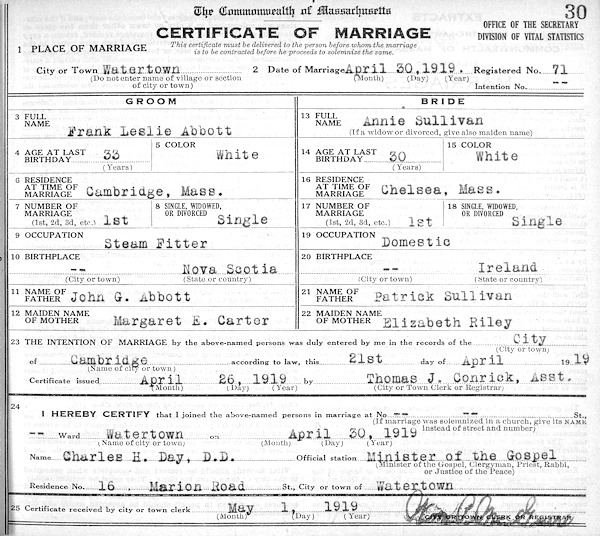 The Commonwealth of Massachusetts
30
CERTIFICATE OF MARRIAGE
OFFICE OF THE SECRETARY
DIVISION OF VITAL STATISTICS
1 PLACE OF MARRIAGE
This certificate must be delivered to the person before whom the marriage
is to be contracted before he proceeds to solemnize the same.
City or Town Watertown 2 Date of Marriage April 30, 1919. Registered No. 71
(Do not enter name of village or section of city or town) (Month) (Day) (Year) Intention No. --
GROOM
3 FULL NAME Frank Leslie Abbott
4 AGE AT LAST BIRTHDAY 33 (Years) 5 COLOR White
6 RESIDENCE AT TIME OF MARRIAGE Cambridge, Mass.
7 NUMBER OF MARRIAGE (1st, 2d, 3d, etc.) 1st 8 SINGLE, WIDOWED, OR DIVORCED Single
9 OCCUPATION Steam Fitter
10 BIRTHPLACE -- Nova Scotia
(City or town) (State or country)
11 NAME OF FATHER John G. Abbott
12 MAIDEN NAME OF MOTHER Margaret E. Carter
BRIDE
13 FULL NAME Annie Sullivan
(If a widow or divorced, give also maiden name)
14 AGE AT LAST BIRTHDAY 30 (Years) 15 COLOR White
16 RESIDENCE AT TIME OF MARRIAGE Chelsea, Mass.
17 NUMBER OF MARRIAGE (1st, 2d, 3d, etc.) 1st 18 SINGLE, WIDOWED, OR DIVORCED Single
19 OCCUPATION Domestic
20 BIRTHPLACE -- Ireland
(City or town) (State or country)
21 NAME OF FATHER Patrick Sullivan
22 MAIDEN NAME OF MOTHER Elizabeth Riley
23 THE INTENTION OF MARRIAGE by the above-named persons was duly entered by me in the records of the City
(City or town)
of Cambridge according to law, this 21st day of April 19 19
(Name of city or town)
Certificate issued April 26, 1919 by Thomas J. Conrick, Asst.
(Month) (Day) (Year) City or Town Clerk or Registrar)
24
I HEREBY CERTIFY that I joined the above-named persons in marriage at No -- -- St.,
(If marriage was solemnized in a church, give its NAME instead of street and number)
-- Ward Watertown on April 30, 1919
(Name of city or town) (Month) (Day) (Year)
Name Charles H. Day, D.D. Official station Minister of the Gospel
(Minister of the Gospel, Clergyman, Priest, Rabbi, or Justice of the Peace)
Residence No. 16 Marion Road St., City or town of Watertown
25 Certificate received by city or town clerk May 1, 1919
(Month) (Day) (Year) CITY OR TOWN CLERK OR REGISTRAR